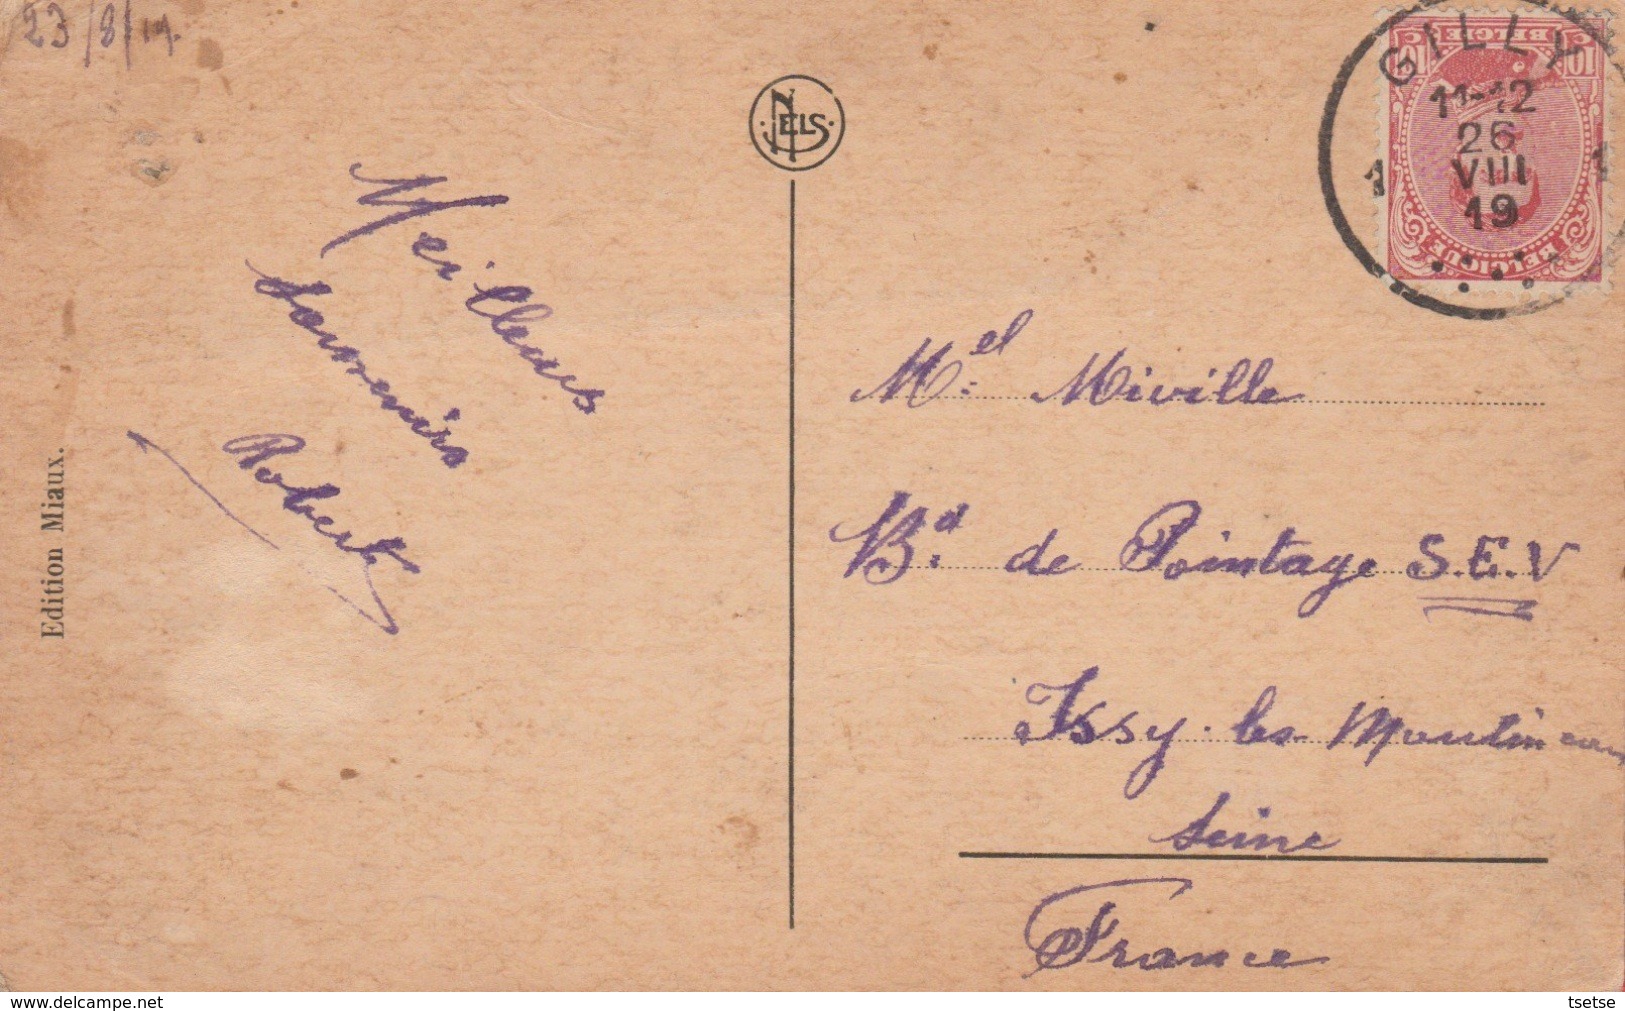 23/8/19.
NELS
GILLY
11-12
26
VIII
19
1 1
10 C BELGIË C 10
BELGIQUE
Meilleurs
souvenirs
Robert
Edition Miaux.
Mel. Miville
Bd. de Pointage S.E.V
Issy-les-Moulineaux
Seine
France
www.delcampe.net
tsetse